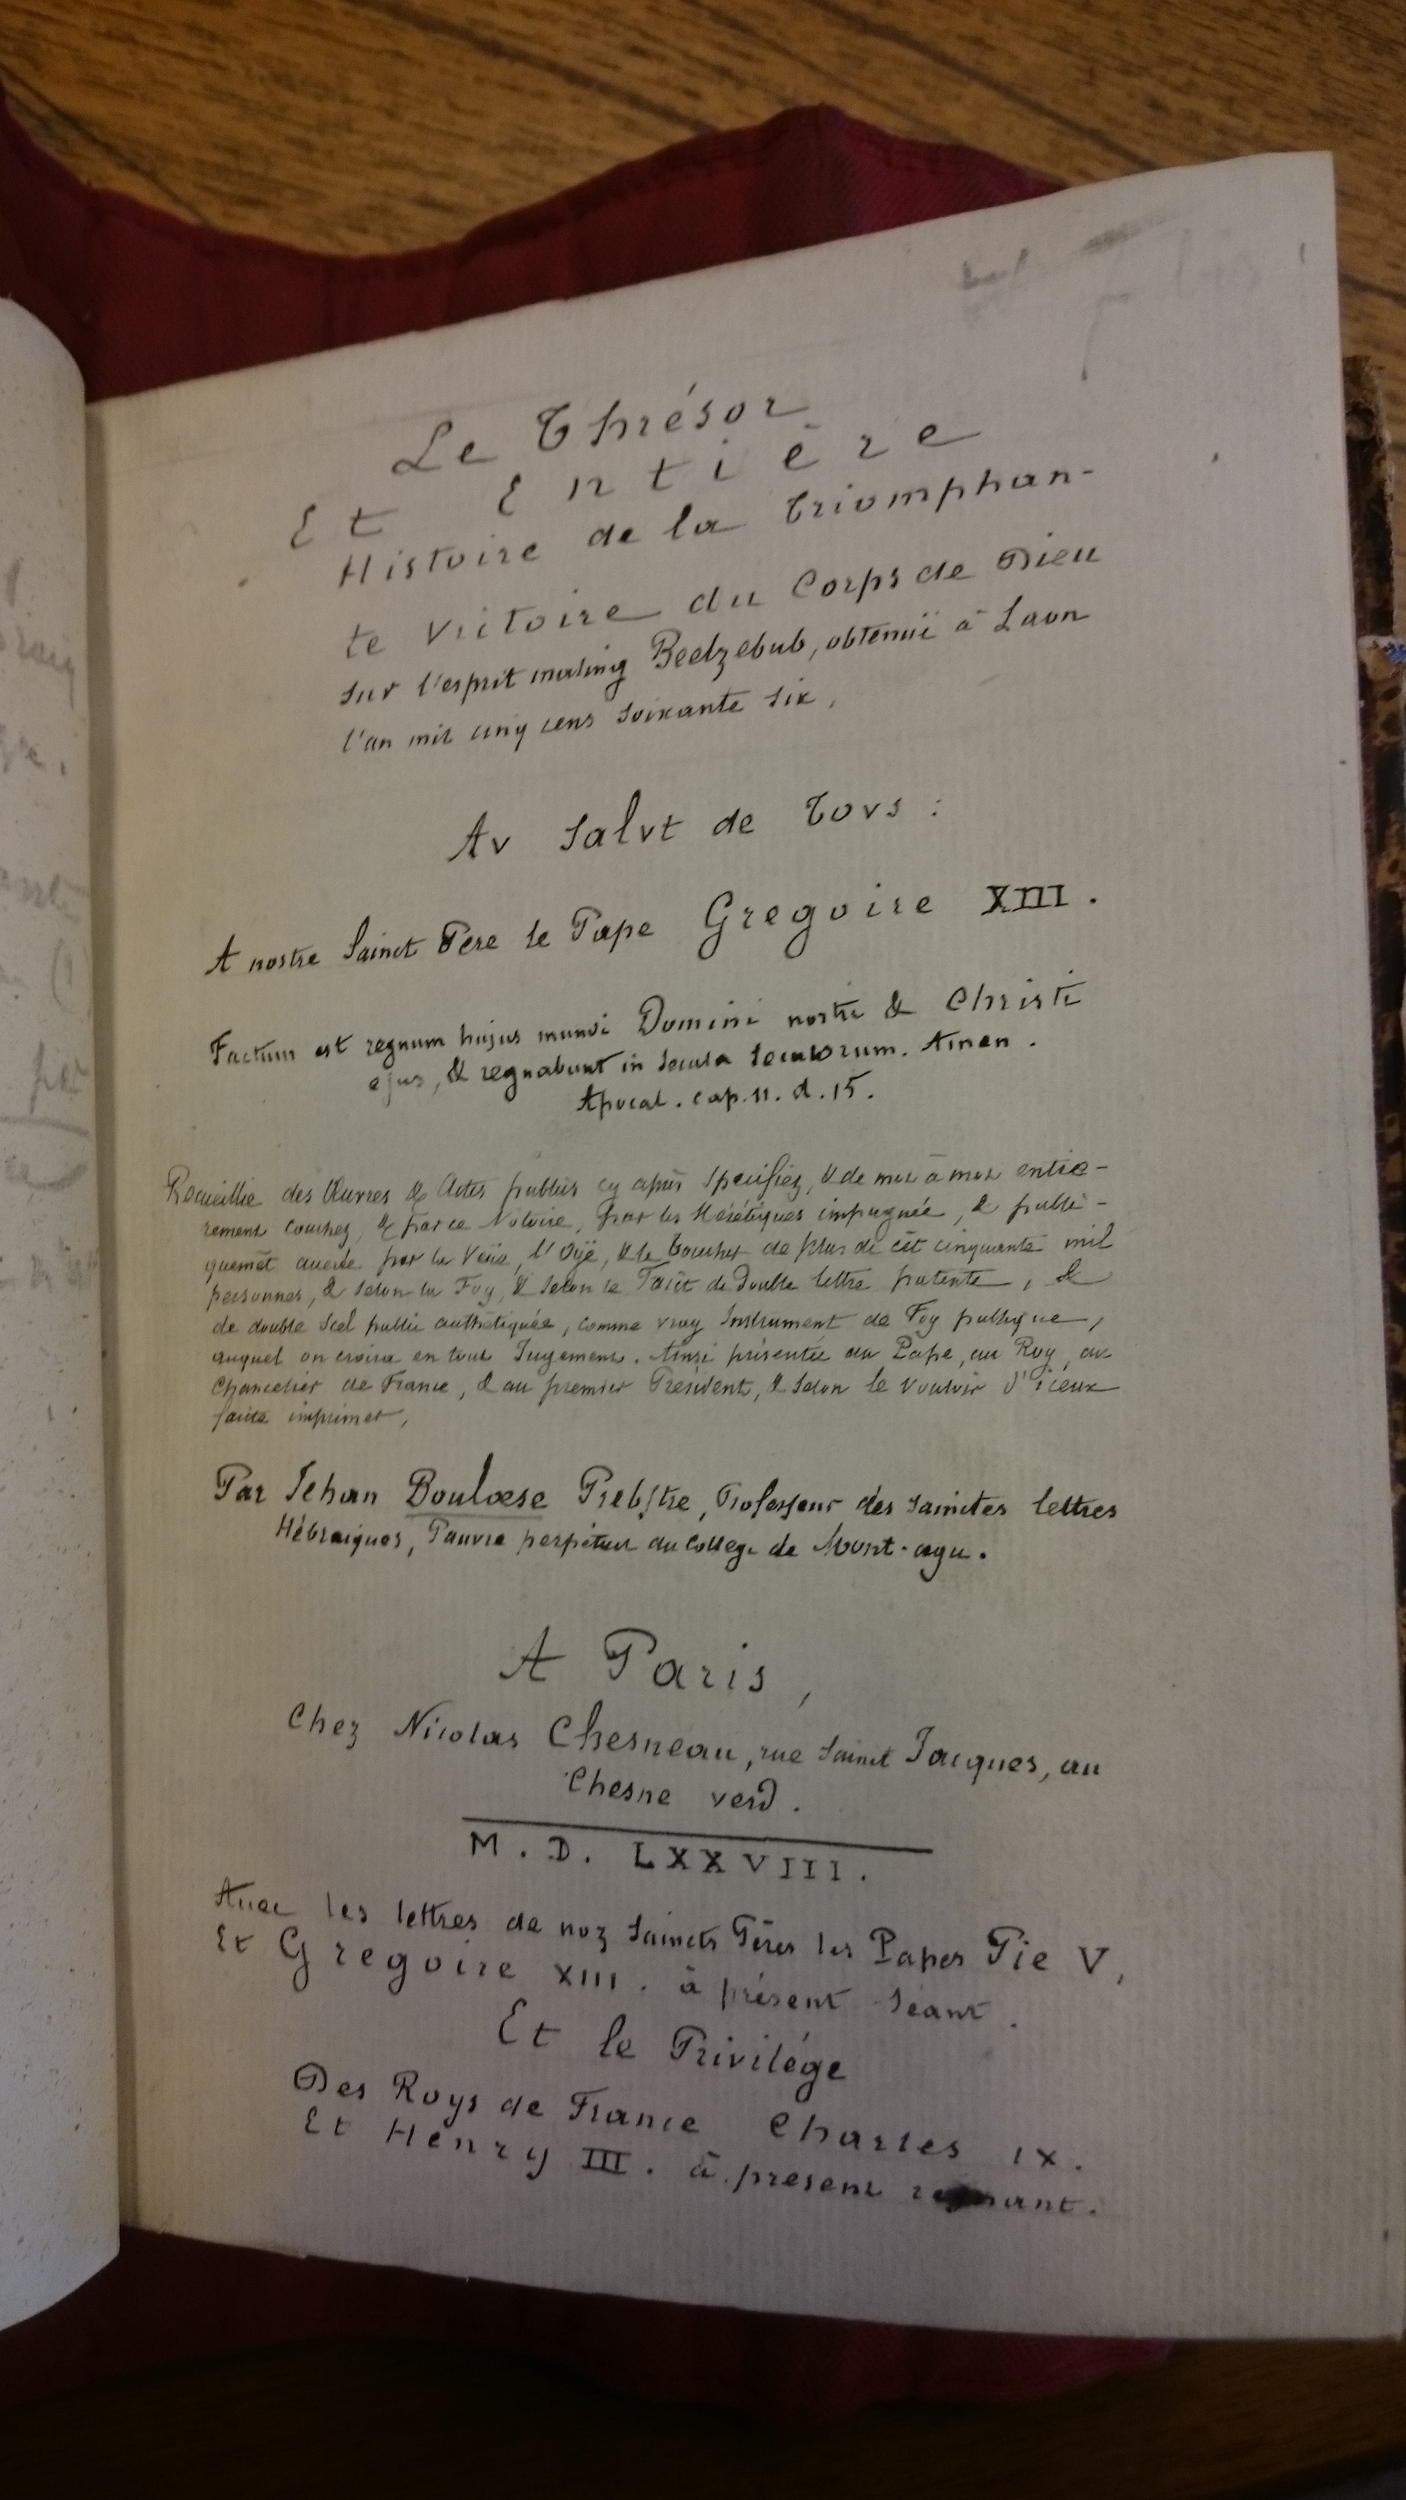 Le Thrésor
Et Entière
Histoire de la Triomphan-
te Victoire du Corps de Dieu
sur l'esprit maling Beelzebub, obtenuë à Laon
l'an mil cinq cens soixante six,
Av Salvt de Tovs :
A nostre Sainct Père le Pape Gregoire XIII.
Factum est regnum hujus mundi Domini nostri & Christi
ejus, & regnabunt in secula seculorum. Amen.
Apocal. cap. 11. d. 15.
Recueillie des Œuvres & Actes publics cy après spécifiez, & de mot à mot entiè-
rement couchez, & par ce Notoire, par les Hérétiques impugnée, & publi-
quemēt avérée par la Veüe, l'Oÿe, & le Toucher de plus de cēt cinquante mil
personnes, & selon la Foy, & selon le Faict de double lettre patente, &
de double Scel public authētiquée, comme vray Instrument de Foy publique,
auquel on croira en tout Jugement. Ainsi présentée au Pape, au Roy, au
Chancelier de France, & au premier Président, & selon le vouloir d'iceux
faicte imprimer,
Par Jehan Boulœse Prebstre, Professeur des Sainctes lettres
Hébraiques, Pauvre perpétuel du College de Mont-agu.
A Paris,
Chez Nicolas Chesneau, rue Sainct Jacques, au
Chesne verd.
M. D. LXXVIII.
Auec les lettres de noz Saincts Pères les Papes Pie V,
Et Gregoire XIII. à présent Séant.
Et le Privilége
Des Roys de France Charles IX.
Et Henry III. à présent